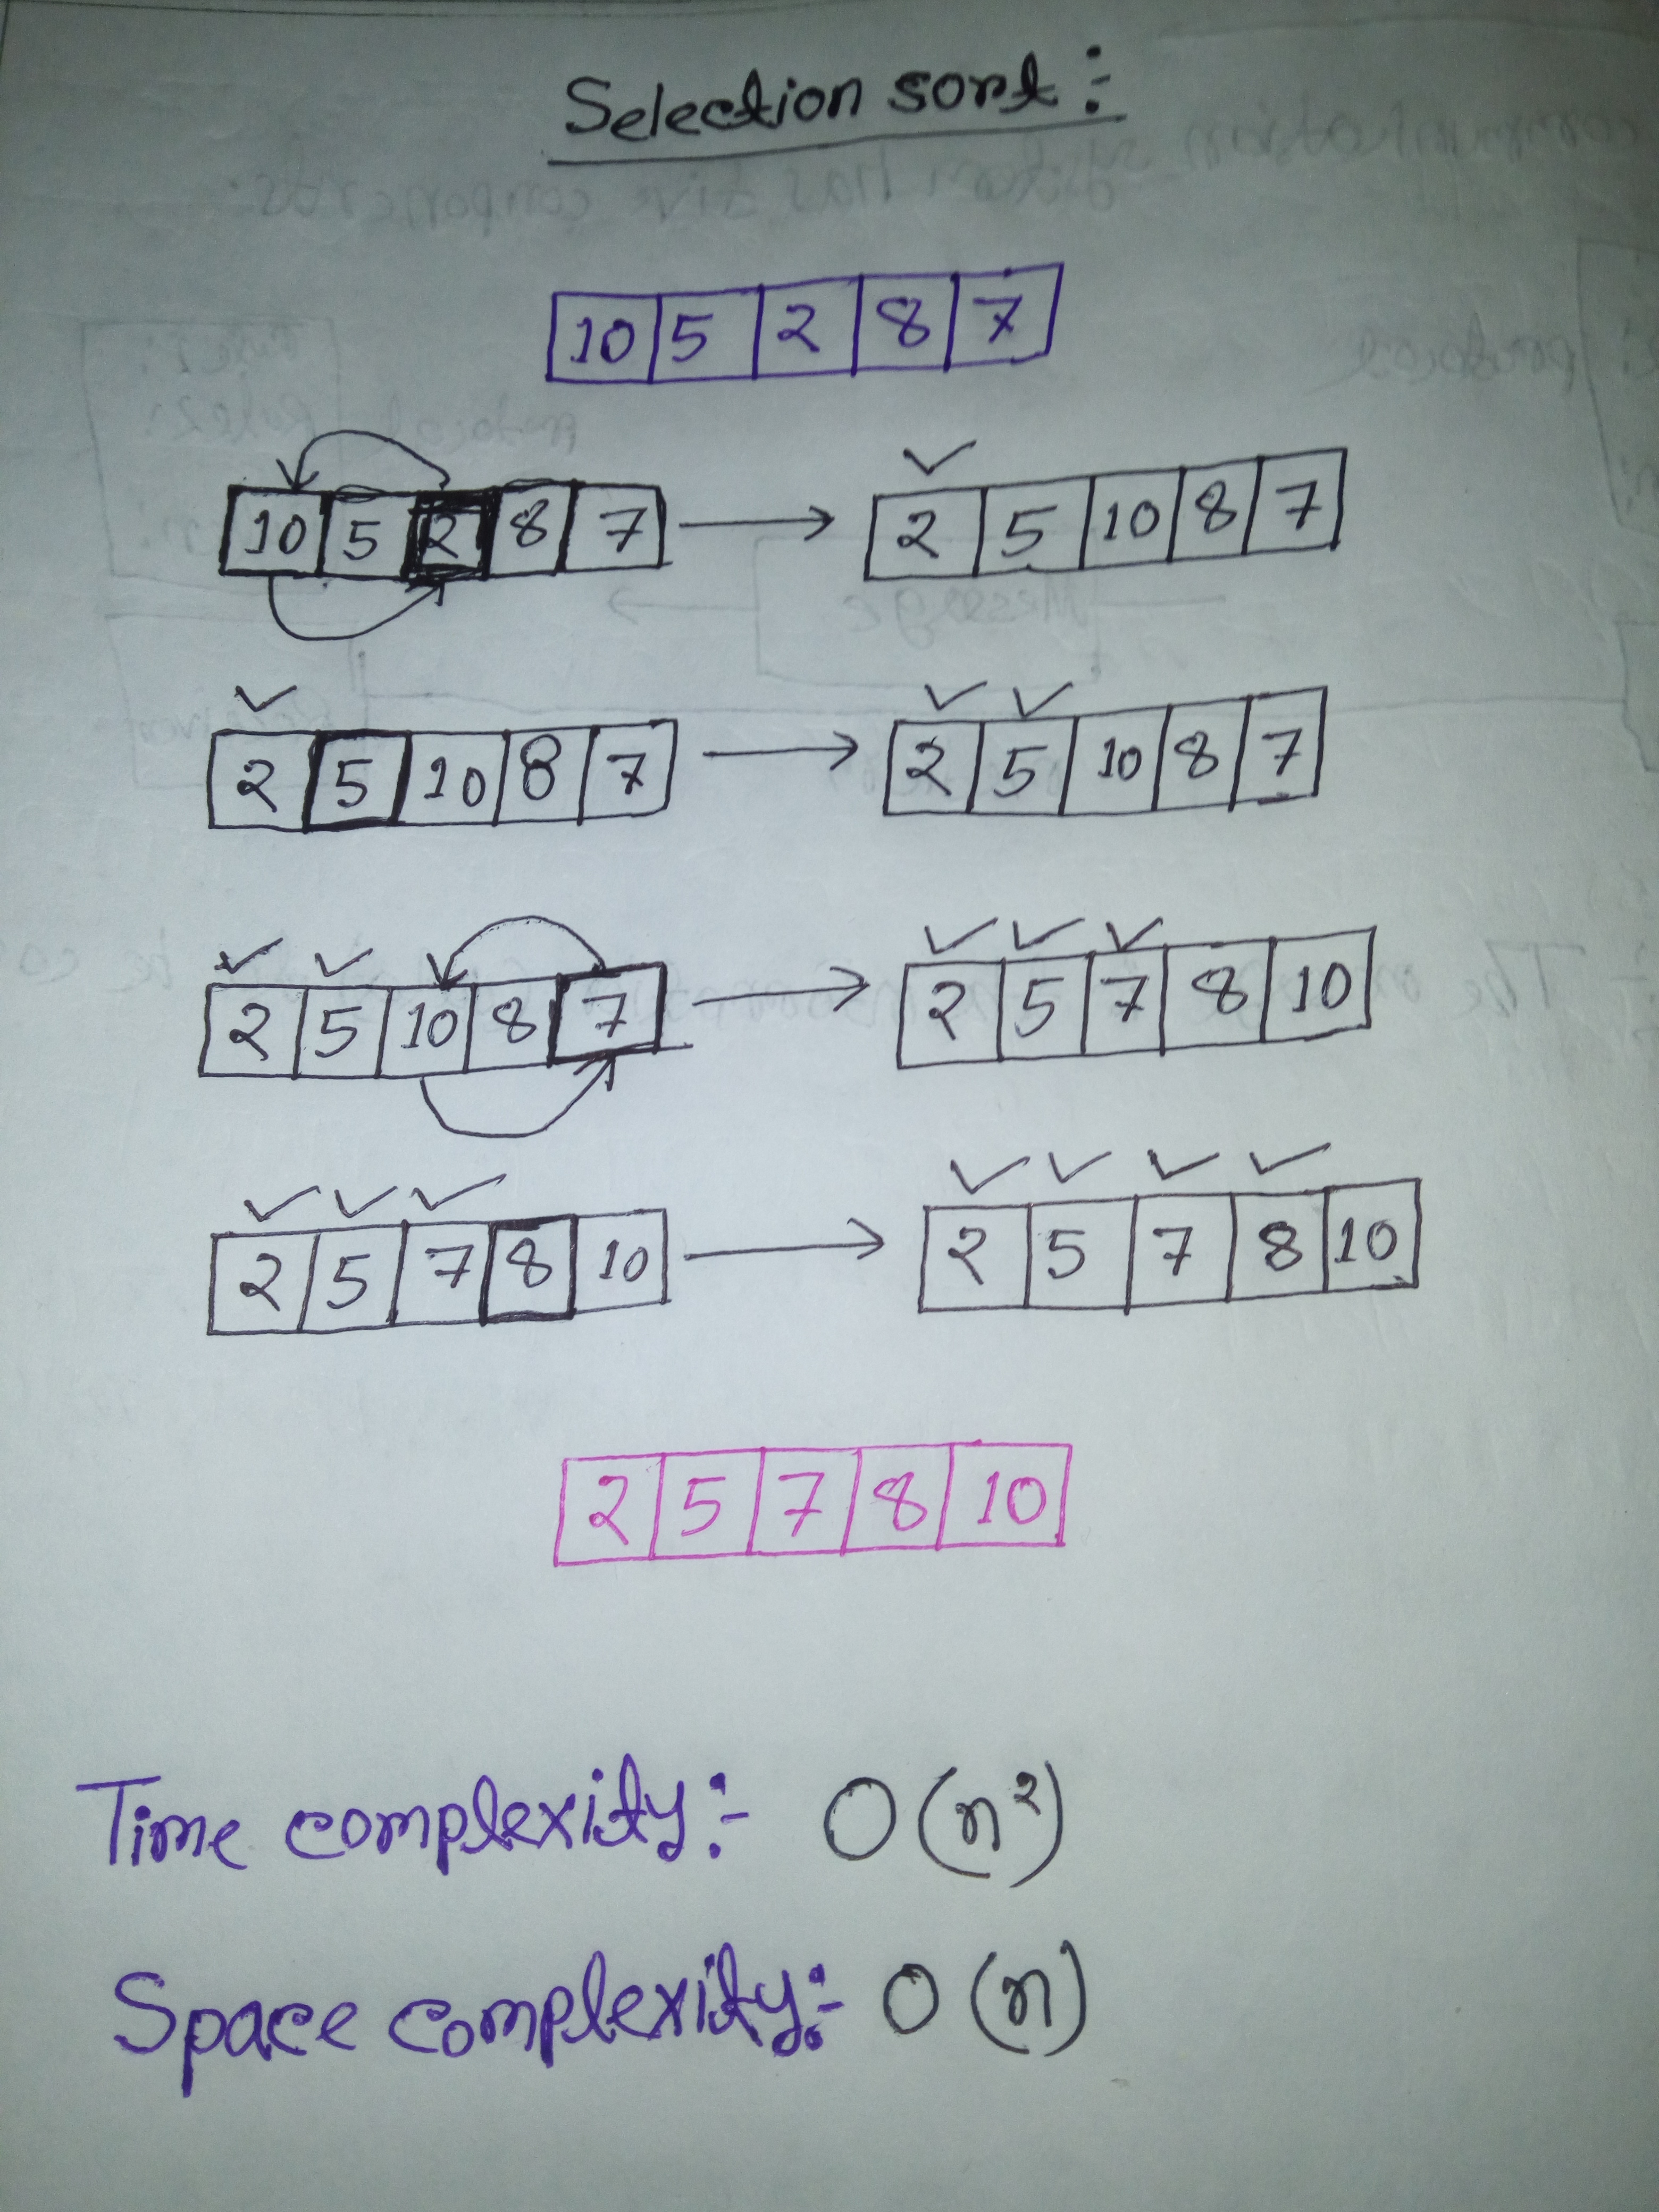 Selection sort :-
10 5 2 8 7
10 5 2 8 7 → 2 5 10 8 7
2 5 10 8 7 → 2 5 10 8 7
2 5 10 8 7 → 2 5 7 8 10
2 5 7 8 10 → 2 5 7 8 10
2 5 7 8 10
Time complexity:- O(n²)
Space complexity:- O(n)